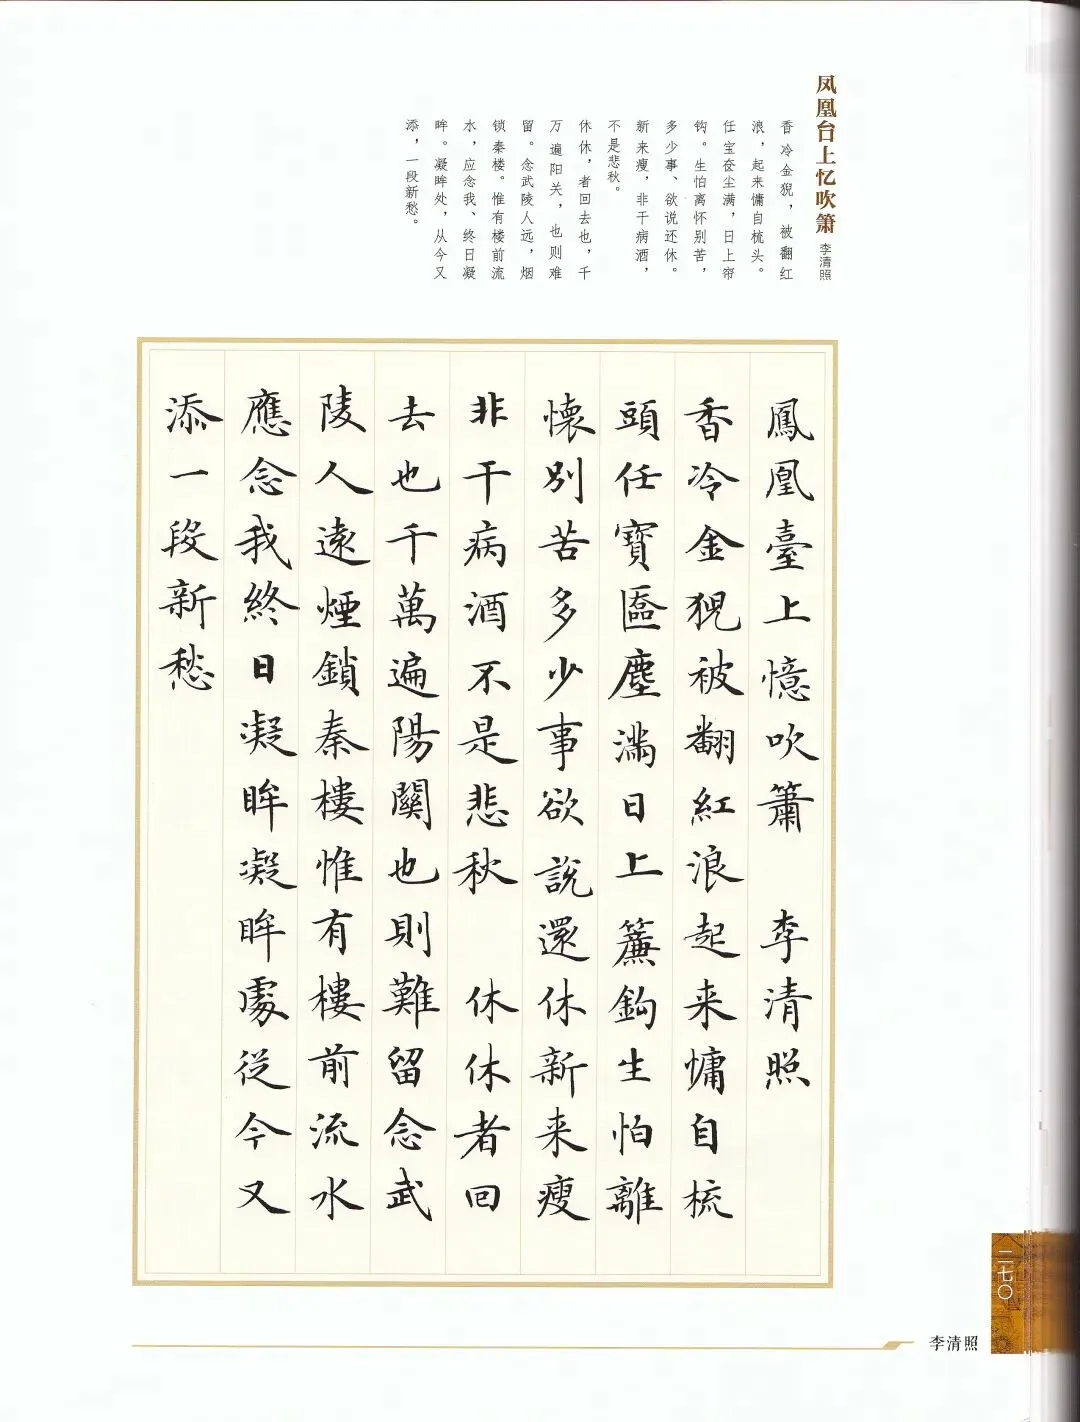 凤凰台上忆吹箫 李清照
香冷金猊，被翻红
浪，起来慵自梳头。
任宝奁尘满，日上帘
钩。生怕离怀别苦，
多少事、欲说还休。
新来瘦，非干病酒，
不是悲秋。
休休，者回去也，千
万遍阳关，也则难
留。念武陵人远，烟
锁秦楼。惟有楼前流
水，应念我、终日凝
眸。凝眸处，从今又
添，一段新愁。
鳳凰臺上憶吹簫 李清照
香冷金猊被翻紅浪起来慵自梳
頭任寶匳塵满日上簾鈎生怕離
懷別苦多少事欲說還休新来瘦
非干病酒不是悲秋 休休者回
去也千萬遍陽關也則難留念武
陵人遠煙鎖秦樓惟有樓前流水
應念我終日凝眸凝眸處從今又
添一段新愁
二七〇
李清照